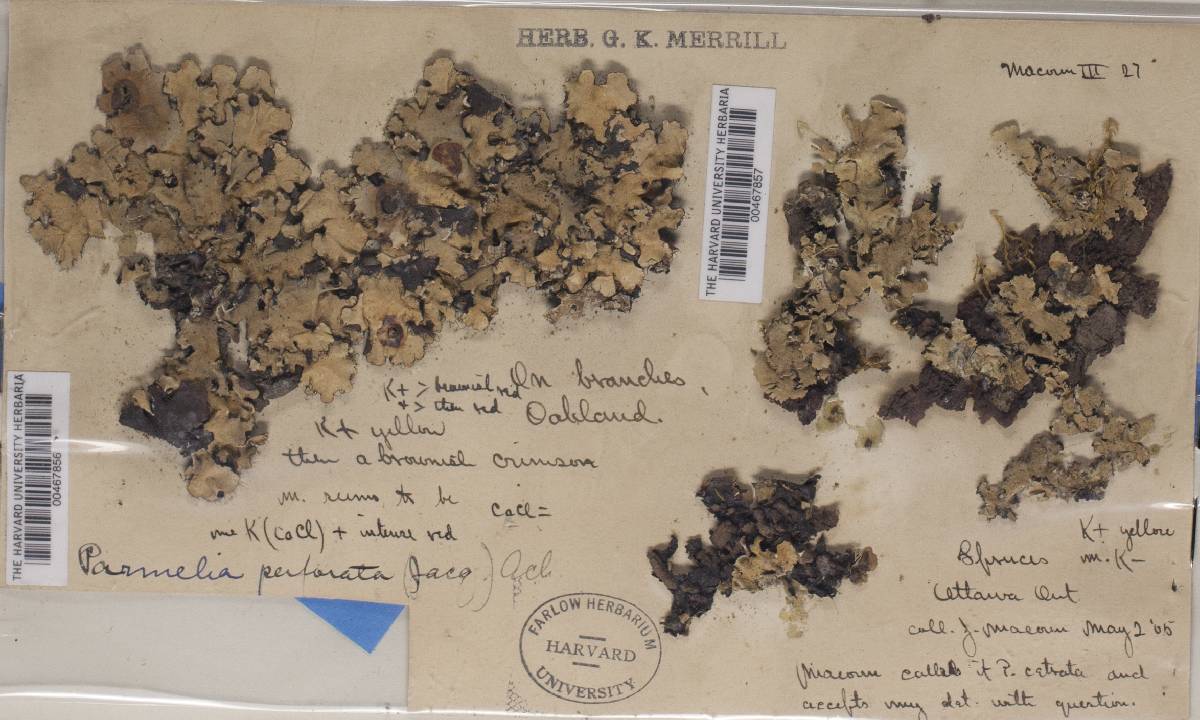 HERB. G. K. MERRILL
Macoun III 27
THE HARVARD UNIVERSITY HERBARIA
00467857
THE HARVARD UNIVERSITY HERBARIA
00467856
On branches,
Oakland.
K+ > brownish red
+ > then red
K+ yellow
then a brownish crimson
m. seems to be
CaCl=
me K(CaCl) + intense red
Parmelia perforata (Jacq.) Ach.
FARLOW HERBARIUM
HARVARD
UNIVERSITY
K+ yellow
Spruces m. K-
Ottawa Ont
coll. J. Macoun May 2 '05
Macoun called it P. cetrata and
accepts my det. with question.